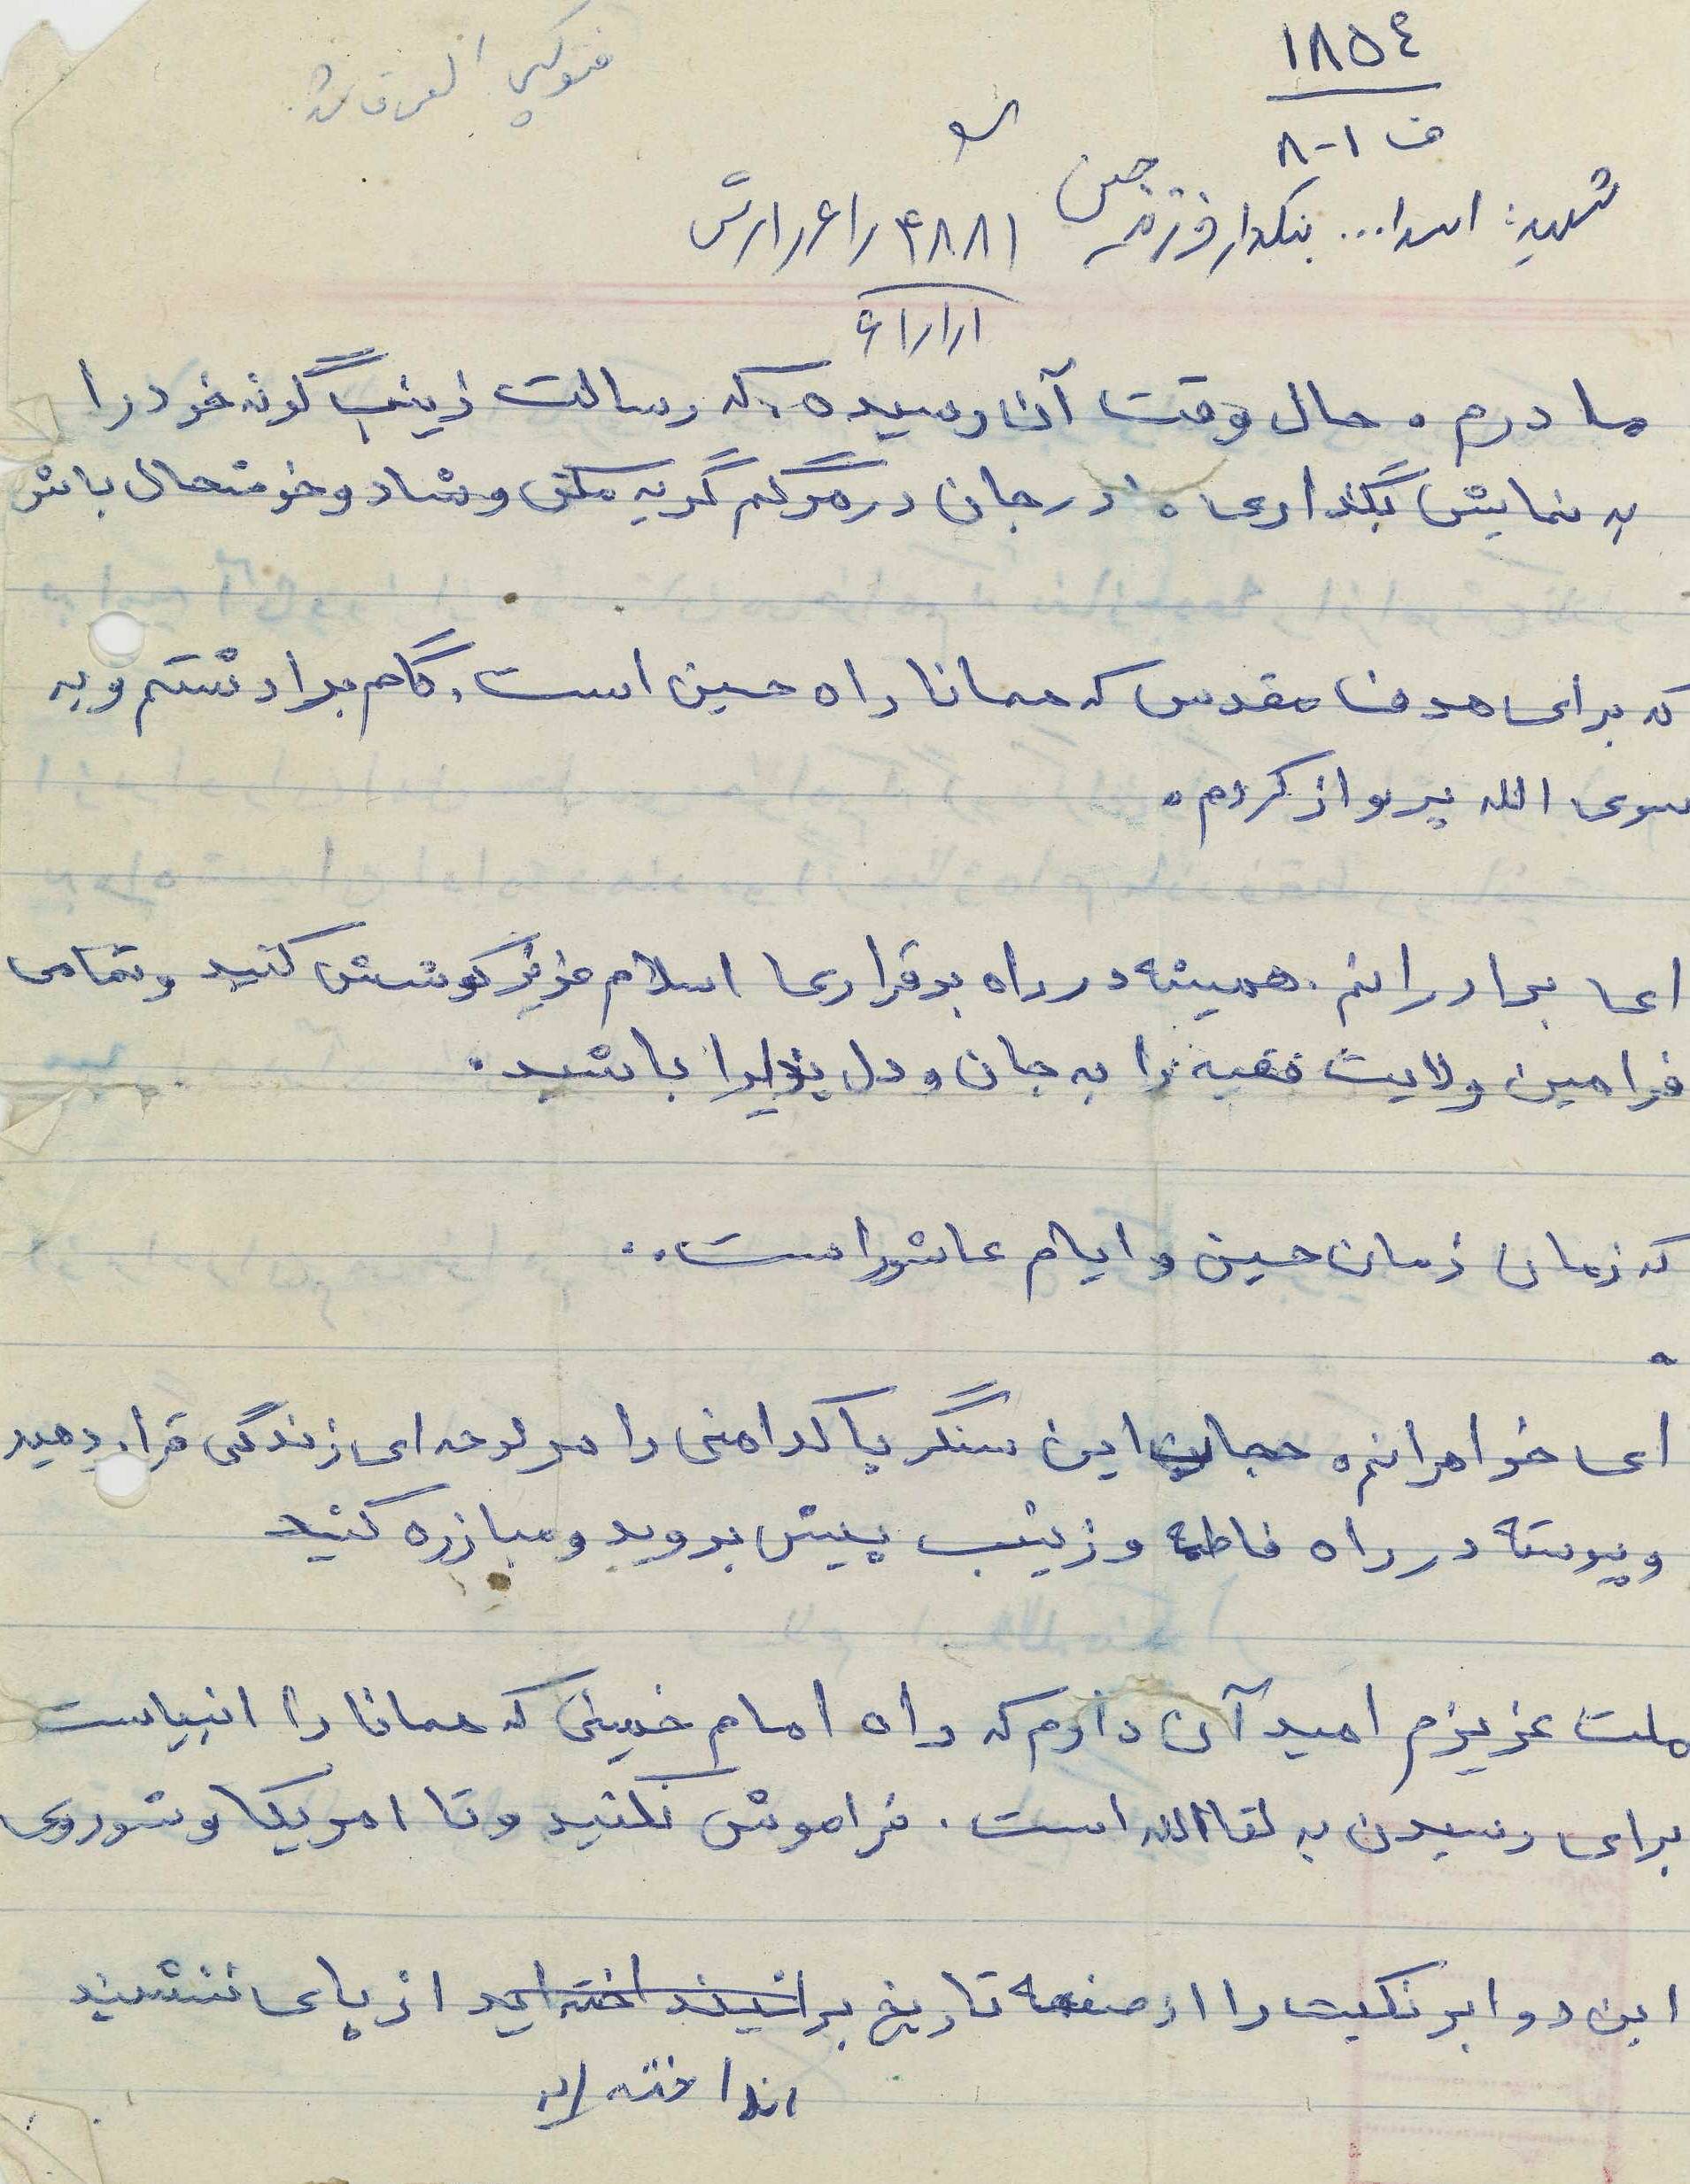 ۱۸۵۴
ف ۱-۸
فتوکپی
شهید: اسدا... بنکدار فرزند حسن
مادرم . حال وقت آن رسیده که رسالت زینب گونه خود را
به نمایش بگذاری . در جان در مرگم گریه مکن و شاد و خوشحال باش
که برای هدف مقدس که همانا راه حسین است. گام برداشتم و به
سوی الله پرواز کردم .
ای برادرانم . همیشه در راه برقراری اسلام عزیز کوشش کنید و تمامی
فرامین ولایت فقیه را به جان و دل پذیرا باشید .
که زمان زمان حسین و ایام عاشوراست ..
ای خواهرانم . حجاب این سنگر پاکدامنی را سرلوحه ای زندگی قرار دهید
و پیوسته در راه فاطمه و زینب پیش بروید و مبارزه کنید
ملت عزیزم امید آن دارم که راه امام خمینی که همانا راه انبیاست
برای رسیدن به لقاالله است . فراموش نکنید و تا امریکا و شوروی
این دو ابر نکبت را از صفحه تاریخ بر از پای ننشینید
انداخته اید